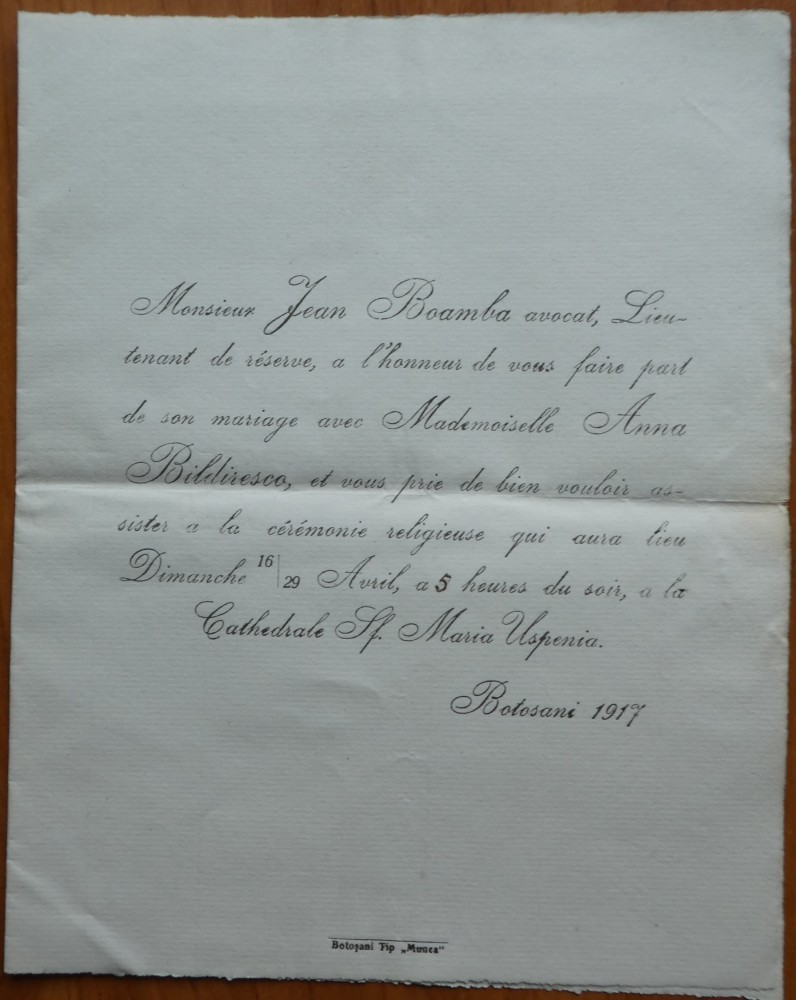 Monsieur Jean Boamba avocat, Lieu-
tenant de réserve, a l'honneur de vous faire part
de son mariage avec Mademoiselle Anna
Bildiresco, et vous prie de bien vouloir as-
sister a la cérémonie religieuse qui aura lieu
Dimanche 16|29 Avril, a 5 heures du soir, a la
Cathedrale Sf. Maria Uspenia.
Botosani 1917
Botoşani Tip „Munca“